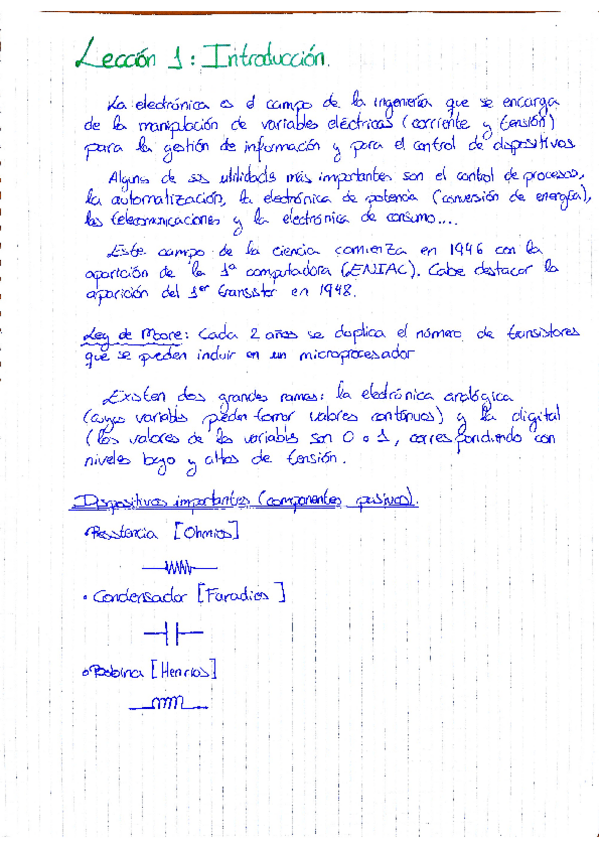 Lección 1: Introducción.
La electrónica es el campo de la ingeniería que se encarga
de la manipulación de variables eléctricas (corriente y tensión)
para la gestión de información y para el control de dispositivos
Alguna de sus utilidades más importantes son el control de procesos,
la automatización, la electrónica de potencia (conversión de energía),
las telecomunicaciones y la electrónica de consumo....
Este campo de la ciencia comienza en 1946 con la
aparición de la 1ª computadora (ENIAC). Cabe destacar la
aparición del 1er transistor en 1948.
Ley de Moore: Cada 2 años se duplica el número de transistores
que se pueden incluir en un microprocesador
Existen dos grandes ramas: la electrónica analógica
(cuyas variables pueden tomar valores continuos) y la digital
(los valores de las variables son 0 o 1, correspondiendo con
niveles bajo y altos de tensión.
Dispositivos importantes (componentes pasivos).
• Resistencia [Ohmios]
• Condensador [Faradios]
• Bobina [Henrios]